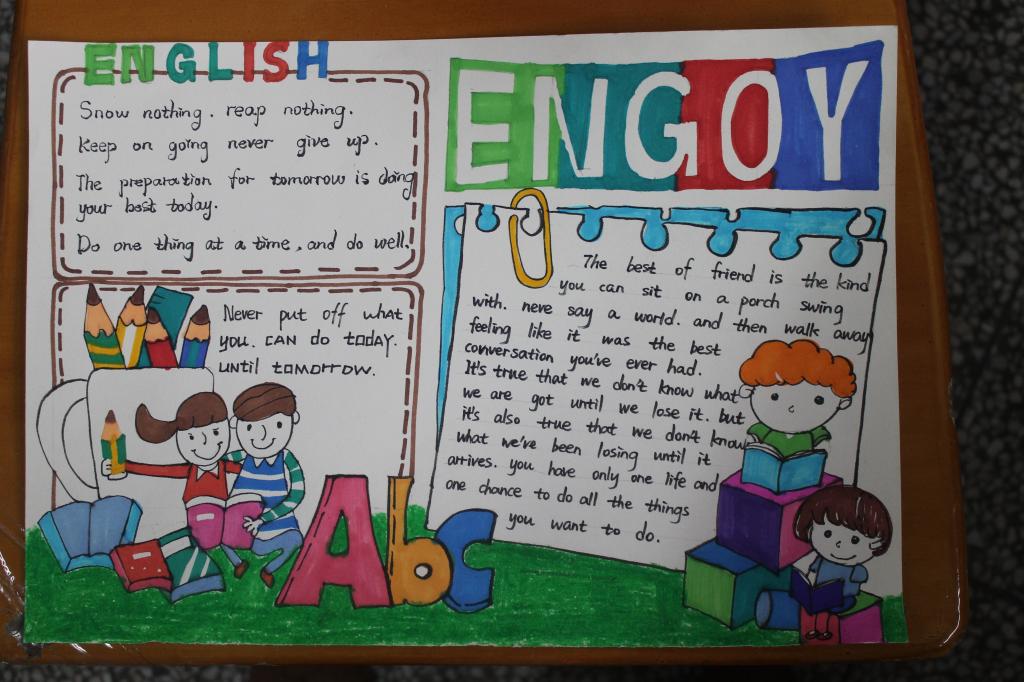 ENGLISH
Snow nothing. reap nothing.
Keep on going never give up.
The preparation for tomorrow is doing
your best today.
Do one thing at a time, and do well.
Never put off what
you. CAN do today.
until tomorrow.
Abc
ENGOY
The best of friend is the kind
you can sit on a porch swing
with. neve say a world. and then walk away
feeling like it was the best
conversation you've ever had.
It's true that we don't know what
we are got until we lose it. but
it's also true that we don't know
what we've been losing until it
arrives. you have only one life and
one chance to do all the things
you want to do.